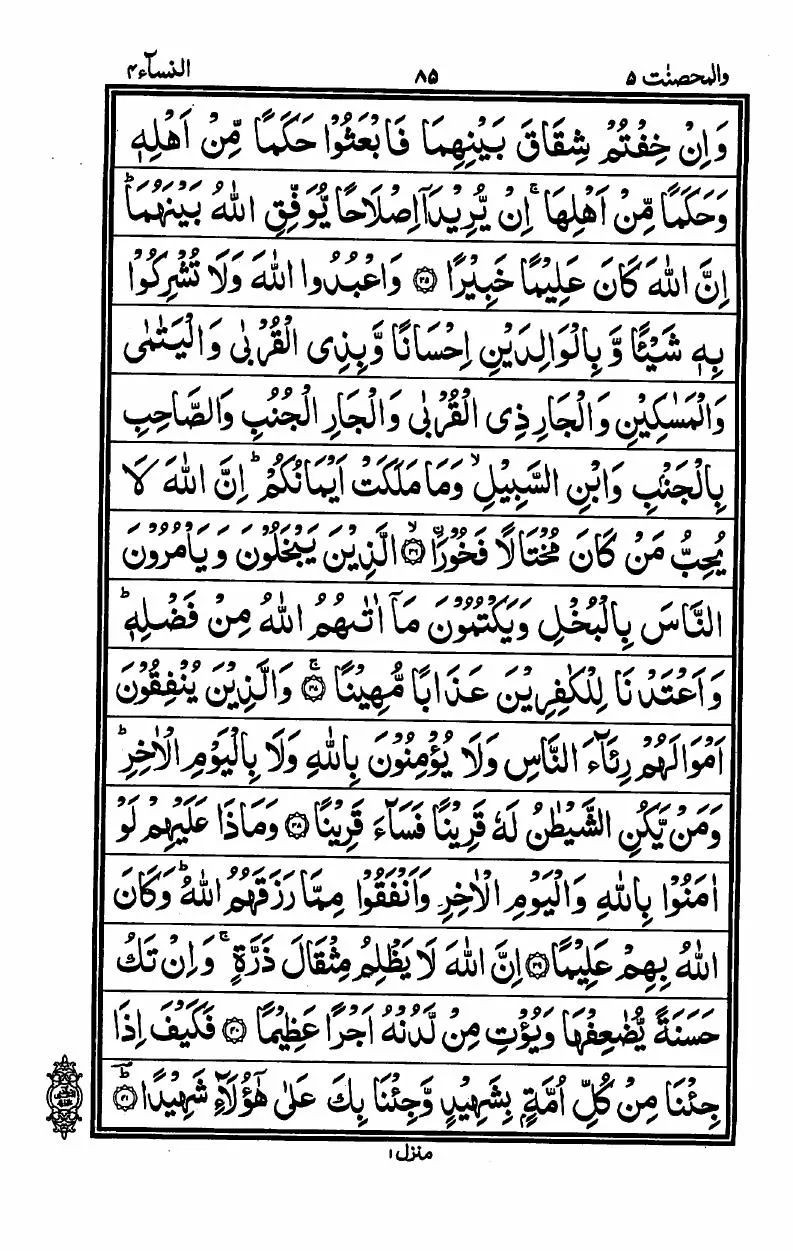 والمحصنت ۵ ۸۵ النسآء ۴
وَاِنْ خِفْتُمْ شِقَاقَ بَيْنِهِمَا فَابْعَثُوْا حَكَمًا مِّنْ اَهْلِهٖ
وَحَكَمًا مِّنْ اَهْلِهَا ۚ اِنْ يُّرِيْدَاۤ اِصْلَاحًا يُّوَفِّقِ اللّٰهُ بَيْنَهُمَا ؕ
اِنَّ اللّٰهَ كَانَ عَلِيْمًا خَبِيْرًا ۝۳۵ وَاعْبُدُوا اللّٰهَ وَلَا تُشْرِكُوْا
بِهٖ شَيْـًٔا وَّ بِالْوَالِدَيْنِ اِحْسَانًا وَّبِذِى الْقُرْبٰى وَالْيَتٰمٰى
وَالْمَسٰكِيْنِ وَالْجَارِ ذِى الْقُرْبٰى وَالْجَارِ الْجُنُبِ وَالصَّاحِبِ
بِالْجَنْۢبِ وَابْنِ السَّبِيْلِ ۙ وَمَا مَلَكَتْ اَيْمَانُكُمْ ؕ اِنَّ اللّٰهَ لَا
يُحِبُّ مَنْ كَانَ مُخْتَالًا فَخُوْرًا ۝۳۶ ۙ الَّذِيْنَ يَبْخَلُوْنَ وَيَاْمُرُوْنَ
النَّاسَ بِالْبُخْلِ وَيَكْتُمُوْنَ مَاۤ اٰتٰىهُمُ اللّٰهُ مِنْ فَضْلِهٖ ؕ
وَاَعْتَدْنَا لِلْكٰفِرِيْنَ عَذَابًا مُّهِيْنًا ۝۳۷ ۚ وَالَّذِيْنَ يُنْفِقُوْنَ
اَمْوَالَهُمْ رِئَآءَ النَّاسِ وَلَا يُؤْمِنُوْنَ بِاللّٰهِ وَلَا بِالْيَوْمِ الْاٰخِرِ ؕ
وَمَنْ يَّكُنِ الشَّيْطٰنُ لَهٗ قَرِيْنًا فَسَآءَ قَرِيْنًا ۝۳۸ وَمَاذَا عَلَيْهِمْ لَوْ
اٰمَنُوْا بِاللّٰهِ وَالْيَوْمِ الْاٰخِرِ وَاَنْفَقُوْا مِمَّا رَزَقَهُمُ اللّٰهُ ؕ وَكَانَ
اللّٰهُ بِهِمْ عَلِيْمًا ۝۳۹ اِنَّ اللّٰهَ لَا يَظْلِمُ مِثْقَالَ ذَرَّةٍ ۚ وَاِنْ تَكُ
حَسَنَةً يُّضٰعِفْهَا وَيُؤْتِ مِنْ لَّدُنْهُ اَجْرًا عَظِيْمًا ۝۴۰ فَكَيْفَ اِذَا
جِئْنَا مِنْ كُلِّ اُمَّةٍۭ بِشَهِيْدٍ وَّجِئْنَا بِكَ عَلٰى هٰٓؤُلَآءِ شَهِيْدًا ۝۴۱ ؕ
منزل ۱